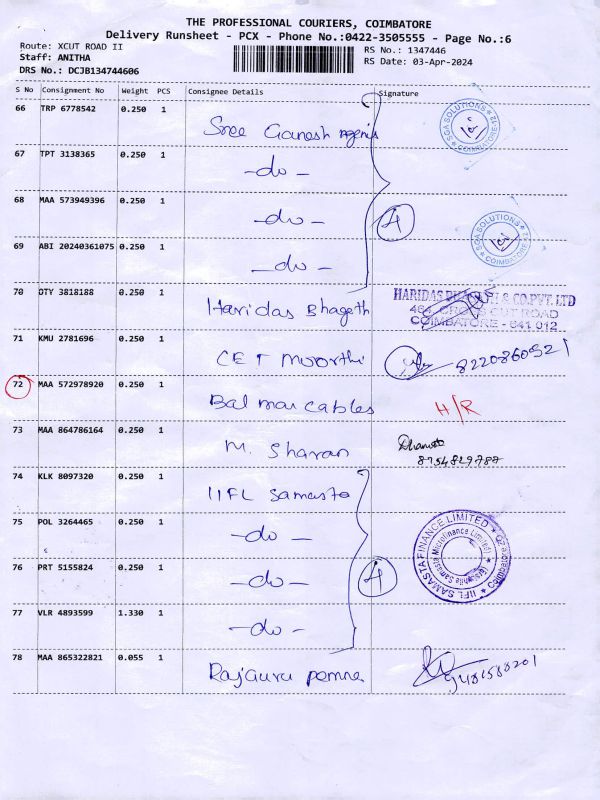 THE PROFESSIONAL COURIERS, COIMBATORE
Delivery Runsheet - PCX - Phone No.:0422-3505555 - Page No.:6
Route: XCUT ROAD II
RS No.: 1347446
Staff: ANITHA
RS Date: 03-Apr-2024
DRS No.: DCJB134744606
S No Consignment No Weight PCS Consignee Details Signature
66 TRP 6778542 0.250 1 Sree Ganesh
SGA SOLUTIONS COIMBATORE-12
67 TPT 3138365 0.250 1 -do-
68 MAA 573949396 0.250 1 -do- 4
69 ABI 20240361075 0.250 1 -do-
SGA SOLUTIONS COIMBATORE-12
70 OTY 3818188 0.250 1 Haridas Bhageth
HARIDAS & CO.PVT.LTD
464, CROSS CUT ROAD
COIMBATORE - 641 012
71 KMU 2781696 0.250 1 CET Moorthi 8220860521
72 MAA 572978920 0.250 1 Bal mar cables H/R
73 MAA 864786164 0.250 1 M. Sharan
8754829787
74 KLK 8097320 0.250 1 IIFL Samasta
75 POL 3264465 0.250 1 -do-
76 PRT 5155824 0.250 1 -do- 4
IIFL SAMASTA FINANCE LIMITED
(Erstwhile Samasta Microfinance Limited)
77 VLR 4893599 1.330 1 -do-
78 MAA 865322821 0.055 1 Rajguru 9486588201